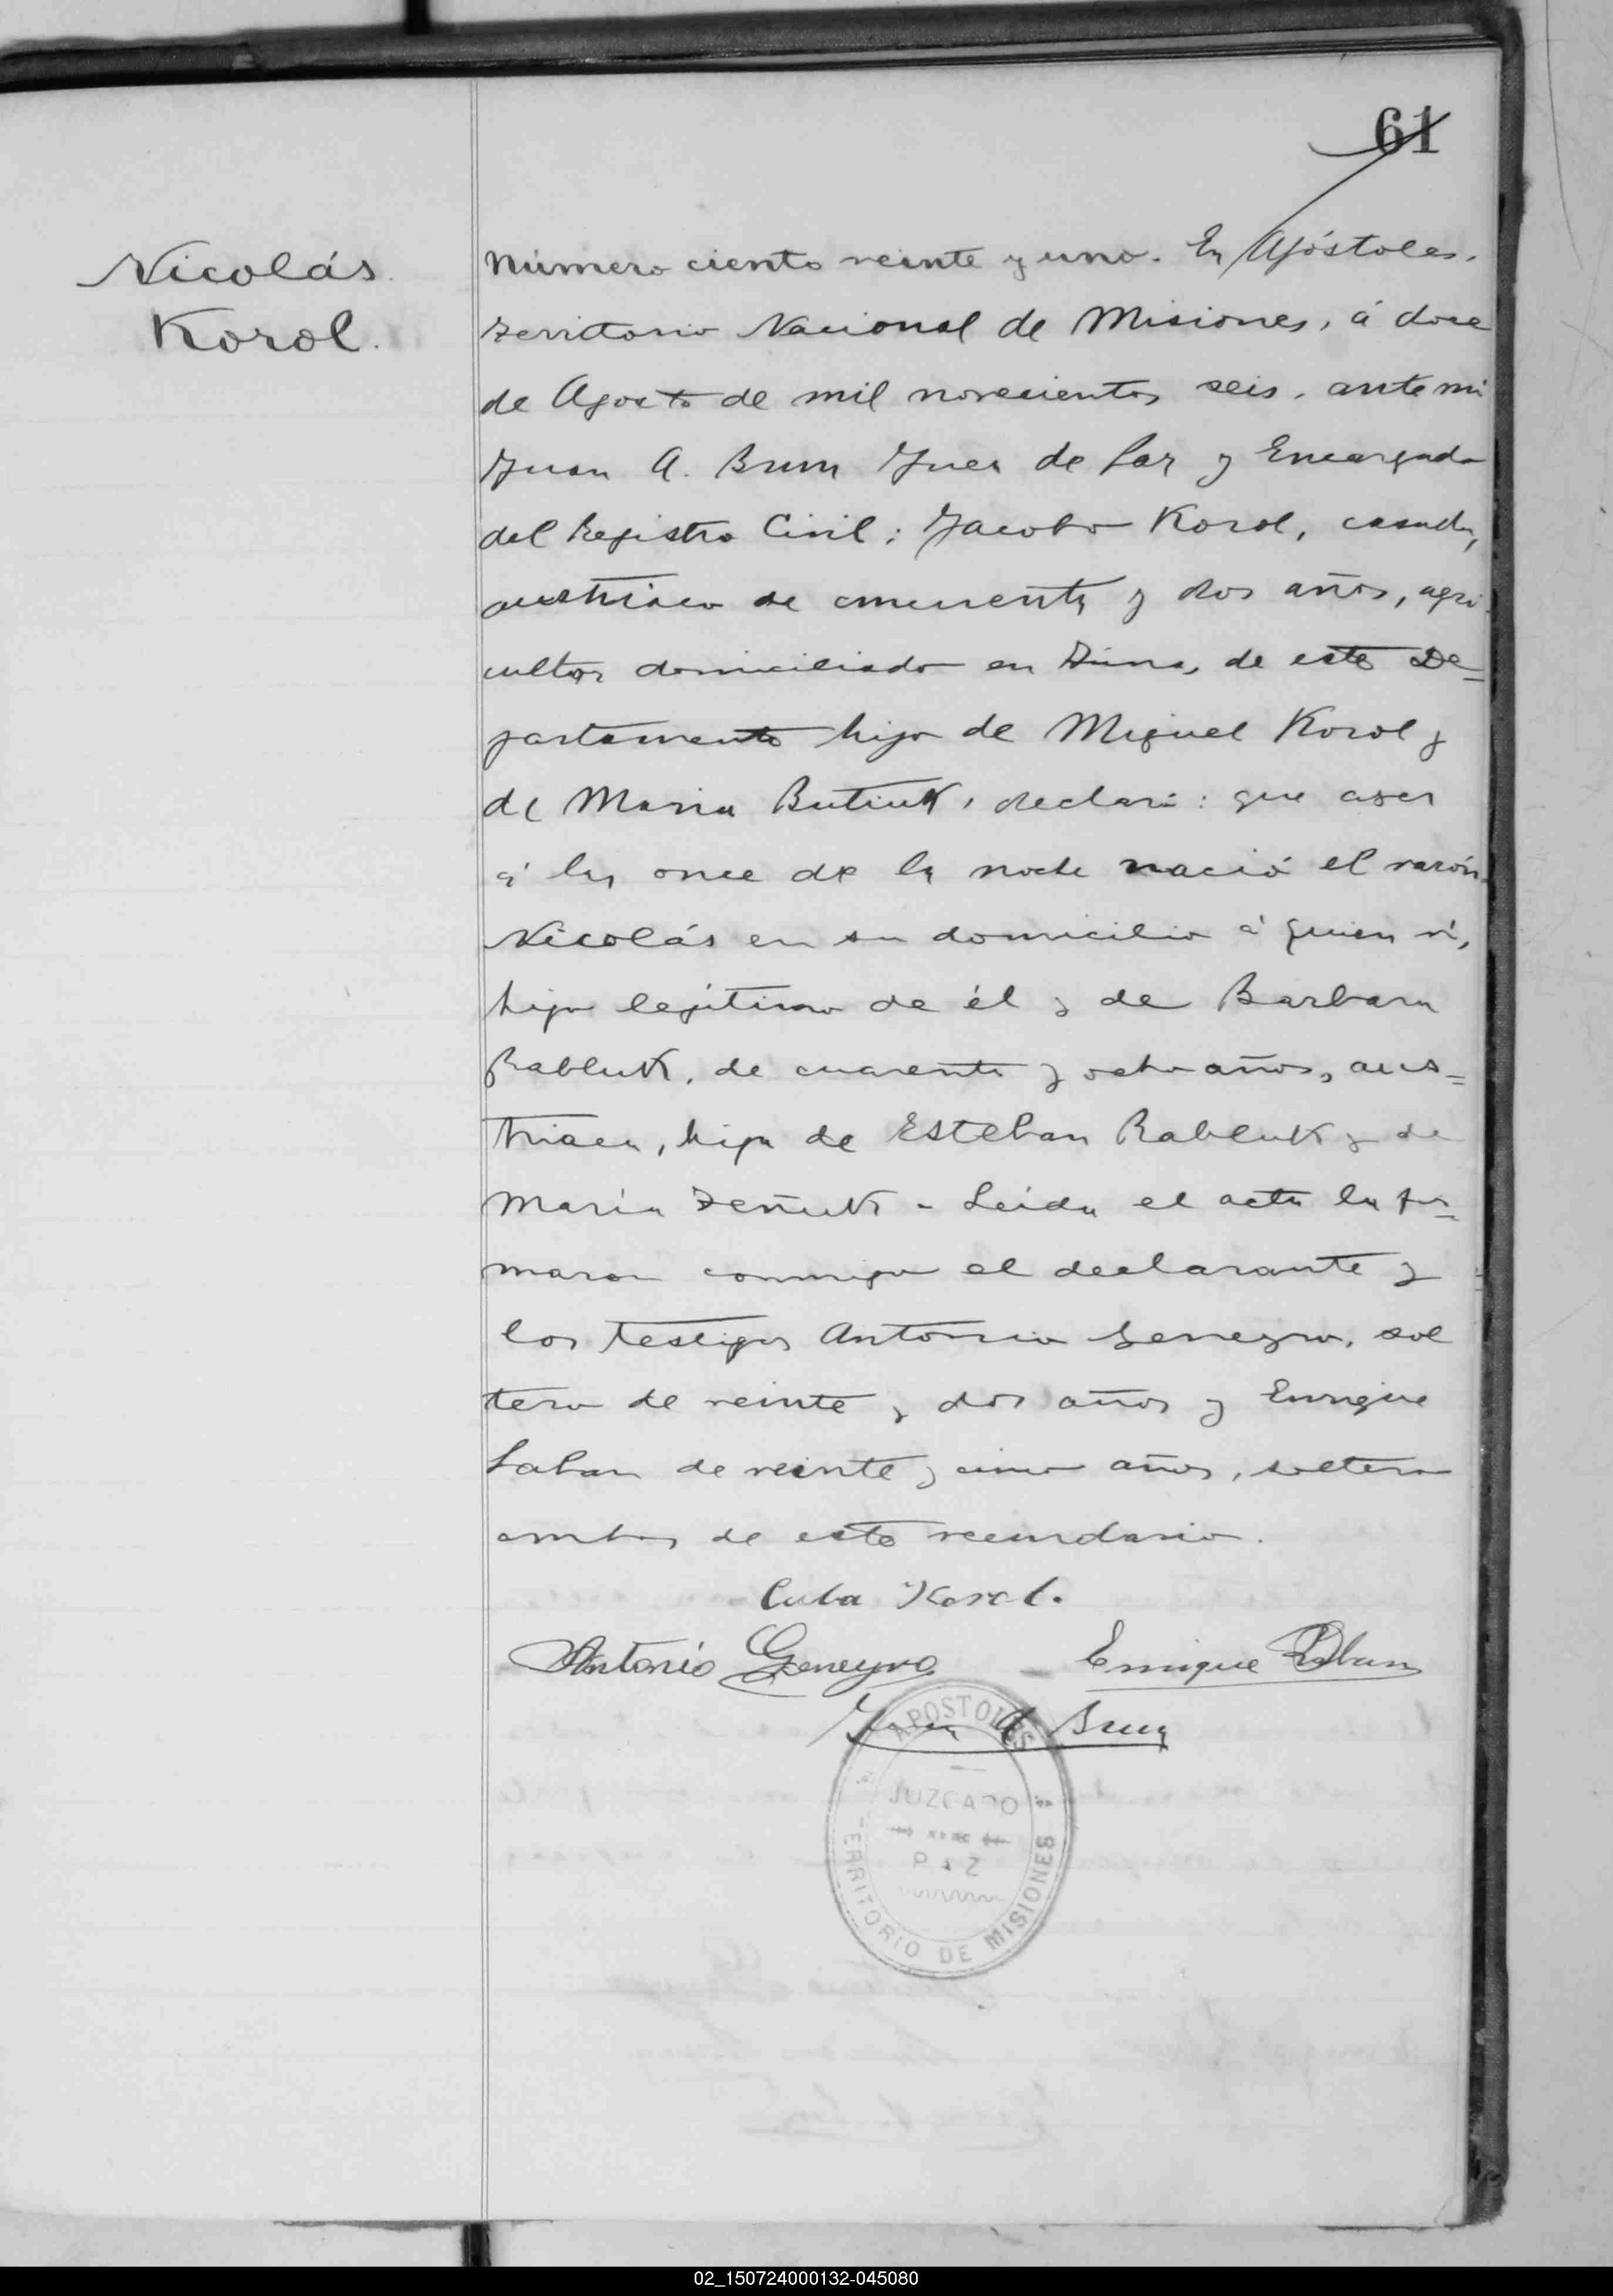 61
Nicolás
Korol.
Número ciento veinte y uno. En Apóstoles,
Territorio Nacional de Misiones, á doce
de Agosto de mil novecientos seis, ante mi
Juan A. Brun Juez de Paz y Encargado
del Registro Civil; Jacobo Korol, casado,
austriaco de cincuenta y dos años, agri-
cultor domiciliado en de este De=
partamento hijo de Miguel Korol y
de Maria Butiuk, declaró: que ayer
á las once de la noche nació el varón
Nicolás en su domicilio á quien ví,
hijo legítimo de él y de Barbara
Babluk, de cuarenta y ocho años, aus=
triaca, hija de Esteban Babluk y de
Maria - Leida el acta la fir=
maron conmigo el declarante y
los testigos Antonio Geneyro, sol
tero de veinte y dos años y Enrique
de veinte y cinco años, soltero
ambos de este vecindario.
Cuba Korol.
Antonio Geneyro Enrique
Juan A Brun
APOSTOLES
JUZGADO
PAZ
TERRITORIO DE MISIONES
02_150724000132-045080